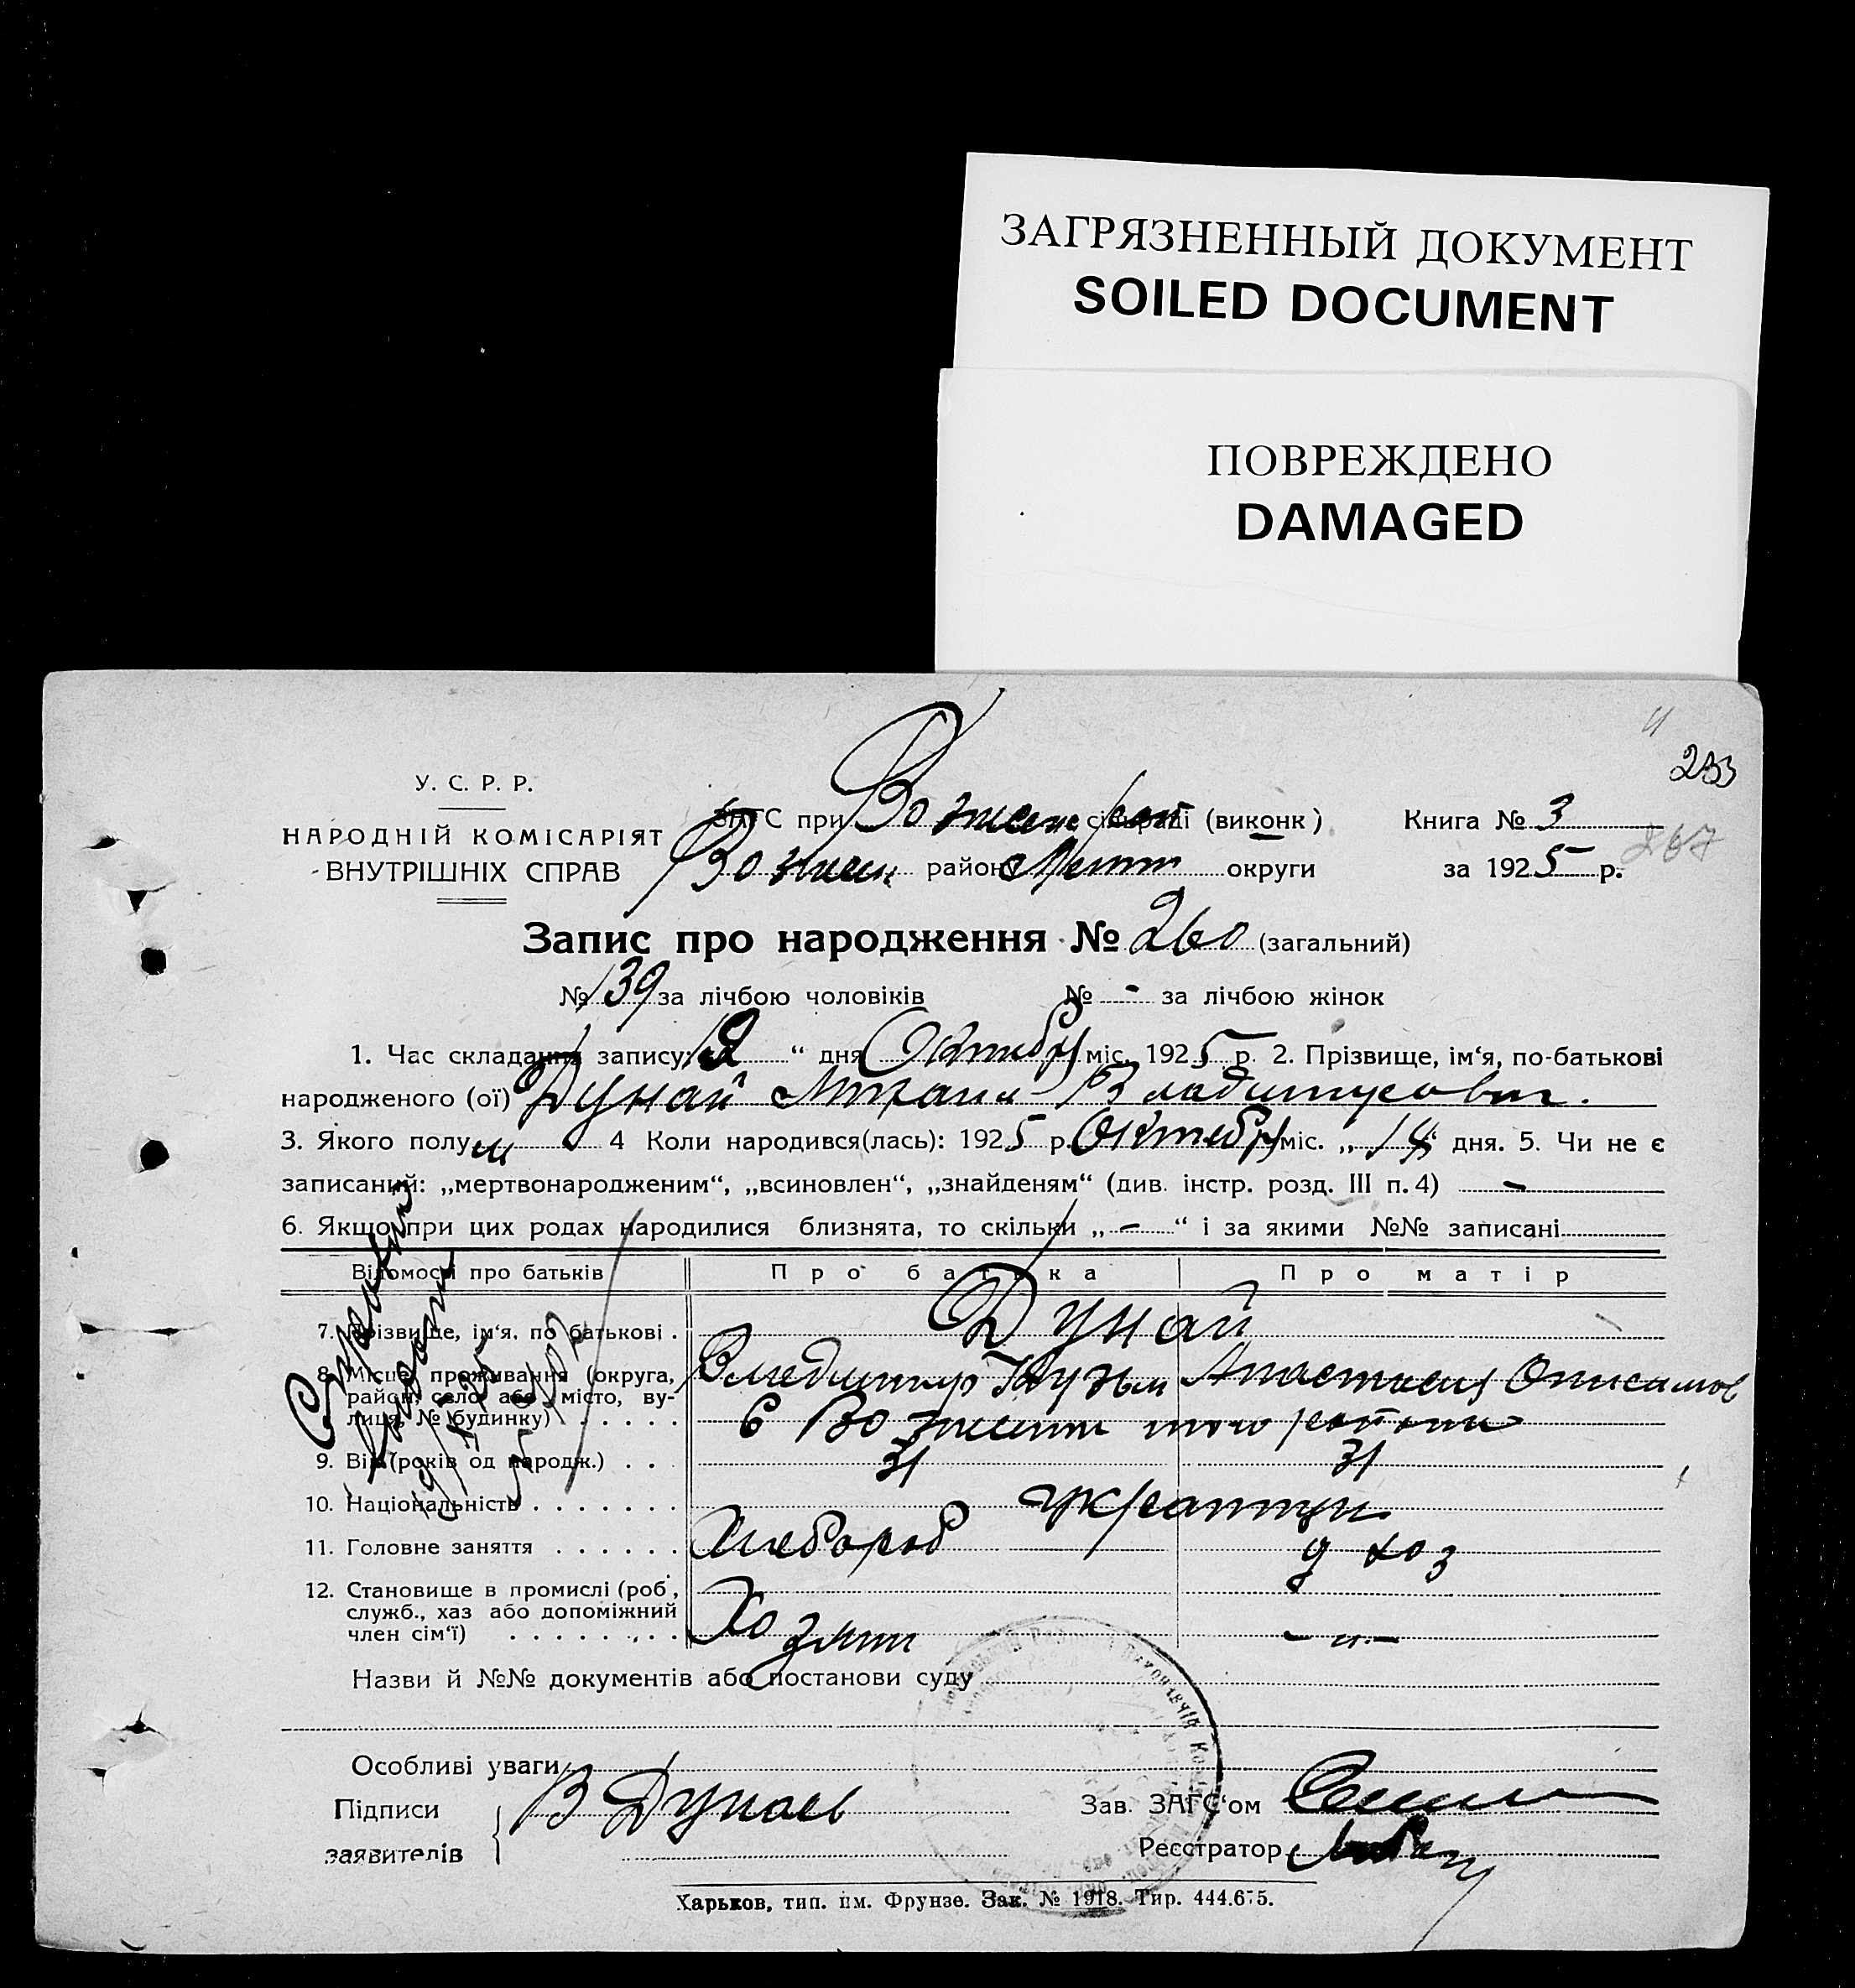 ЗАГРЯЗНЕННЫЙ ДОКУМЕНТ
SOILED DOCUMENT
ПОВРЕЖДЕНО
DAMAGED
233
У. С. Р. Р.
НАРОДНІЙ КОМІСАРІЯТ
ВНУТРІШНІХ СПРАВ
ЗАГС при сільраді (виконк) Книга № 3
267
району округи за 1925 р.
Запис про народження № 260 (загальний)
№ 139 за лічбою чоловіків № - за лічбою жінок
1. Час складання запису: " дня Октября міс. 1925 р. 2. Прізвище, ім‘я, по-батькові
народженого (ої) Дунай Владимирович.
3. Якого полу м 4 Коли народився(лась): 1925 р. Октября міс. „ дня. 5. Чи не є
записаний: „мертвонародженим“, „всиновлен“, „знайденям“ (див. інстр. розд. III п. 4) -
6. Якщо при цих родах народилися близнята, то скільки „ - “ і за якими №№ записані
Відомості про батьків Про батька Про матір
7. Прізвище, ім‘я, по батькові . Дунай
8. Місце проживання (округа,
район, село або місто, ву-
лиця, № будинку) . . . . .
Владимир Кузьм Анастасия
9. Вік (років од народж.) . . . 31 31
10. Національність . . . . . . .
11. Головне заняття . . . . . . Хлебороб д хоз
12. Становище в промислі (роб.,
служб., хаз або допоміжний
член сім‘ї) . . . . . . . . Хозяин - „ -
Назви й №№ документів або постанови суду
Особливі уваги
Підписи
заявителів
В Дунаев
Зав. ЗАГС‘ом
Реєстратор
Харьков, тип. им. Фрунзе. Зак. № 1918. Тир. 444.675.